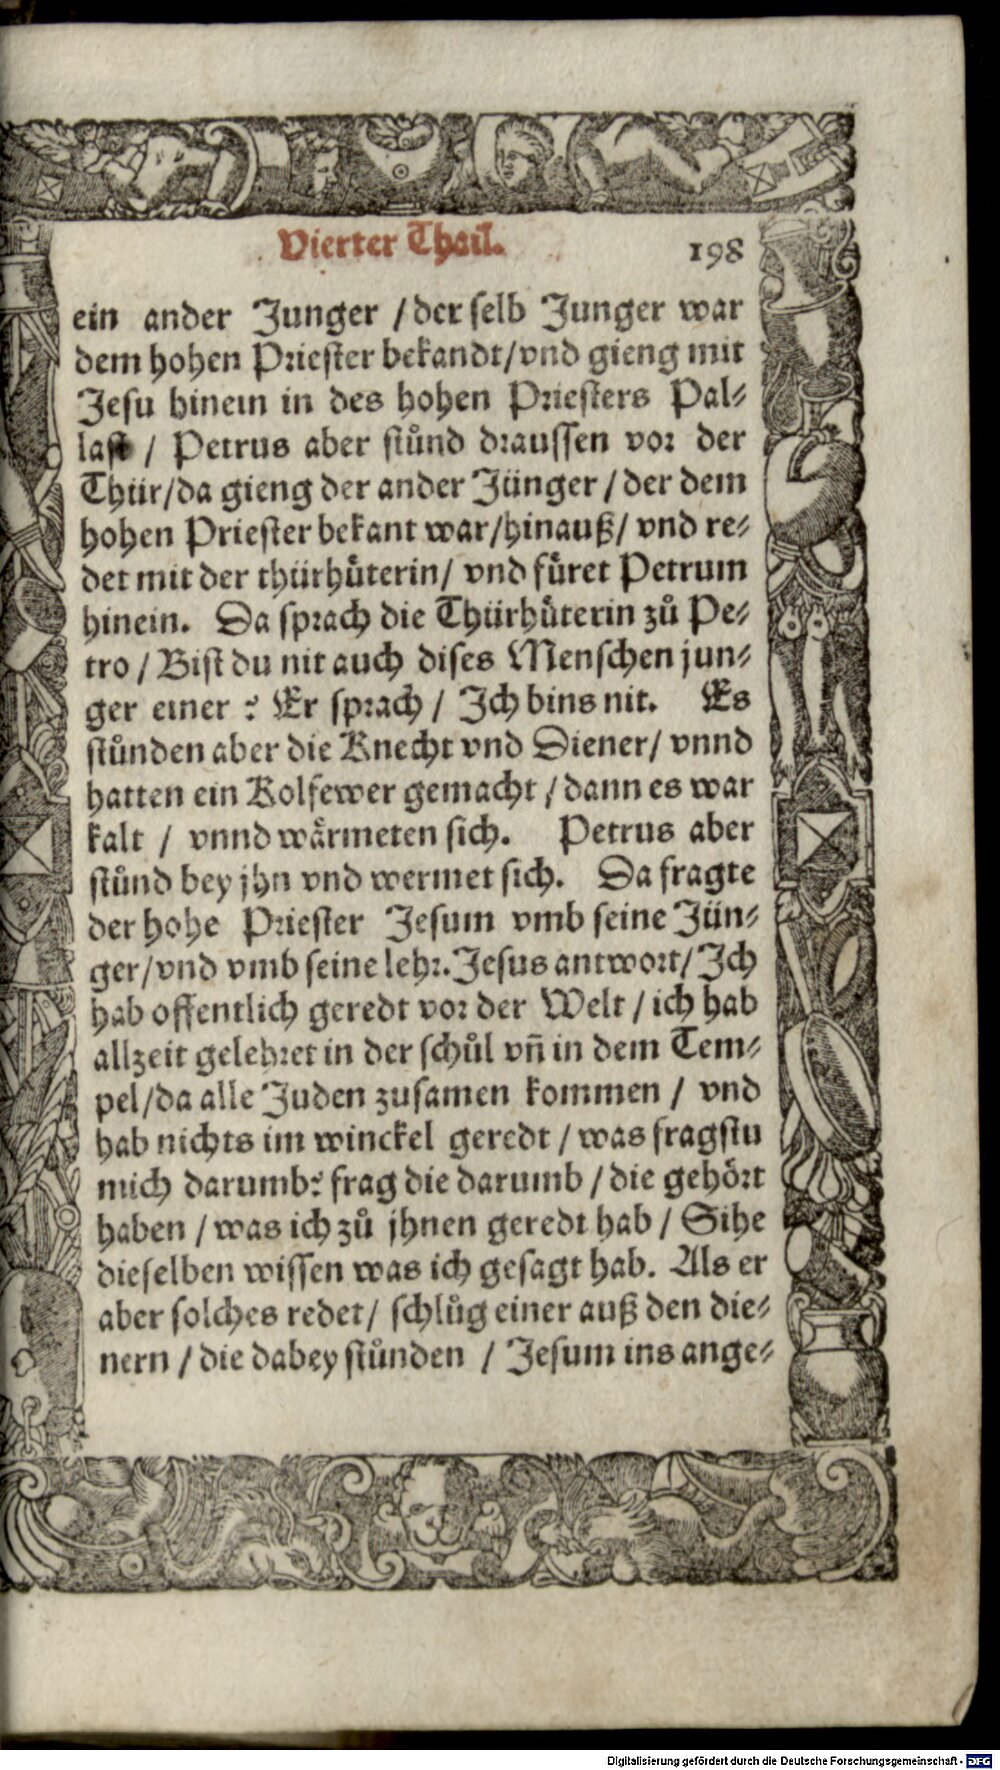 Vierter Thail. 198
ein ander Junger / der selb Junger war
dem hohen Priester bekandt / vnd gieng mit
Jesu hinein in des hohen Priesters Pal⸗
last / Petrus aber stůnd draussen vor der
Thür / da gieng der ander Jünger / der dem
hohen Priester bekant war / hinauß / vnd re⸗
det mit der thürhüterin / vnd füret Petrum
hinein. Da sprach die Thürhüterin zů Pe⸗
tro / Bist du nit auch dises Menschen jun⸗
ger einer? Er sprach / Ich bins nit. Es
stůnden aber die Knecht vnd Diener / vnnd
hatten ein Kolfewer gemacht / dann es war
kalt / vnnd wärmeten sich. Petrus aber
stůnd bey jhn vnd wermet sich. Da fragte
der hohe Priester Jesum vmb seine Jün⸗
ger / vnd vmb seine lehr. Jesus antwort / Ich
hab offentlich geredt vor der Welt / ich hab
allzeit gelehret in der schůl vn̄ in dem Tem⸗
pel / da alle Juden zusamen kommen / vnd
hab nichts im winckel geredt / was fragstu
mich darumb? frag die darumb / die gehört
haben / was ich zů jhnen geredt hab / Sihe
dieselben wissen was ich gesagt hab. Als er
aber solches redet / schlůg einer auß den die⸗
nern / die dabey stůnden / Jesum ins ange⸗
Digitalisierung gefördert durch die Deutsche Forschungsgemeinschaft - DFG